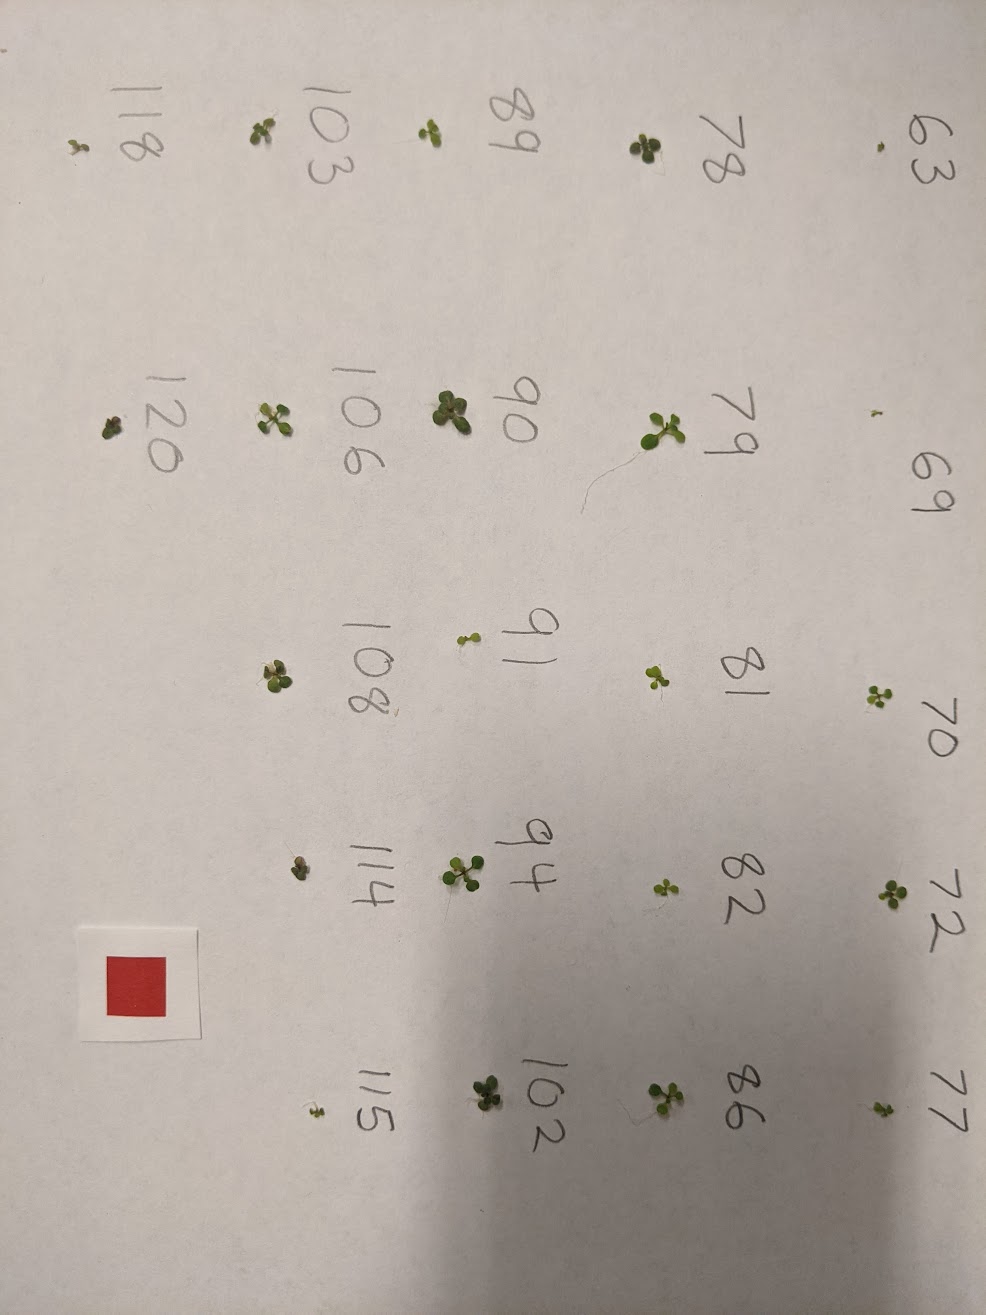 63 69 70 72 77
78 79 81 82 86
89 90 91 94 102
103 106 108 114 115
118 120